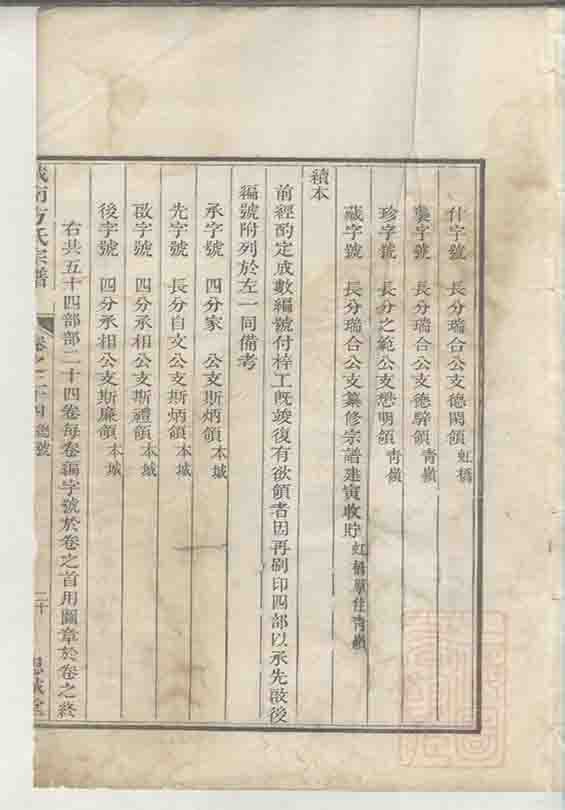 什字號　長分瑞合公支德閑領虹橋
襲字號　長分瑞合公支德驊領青嶺
珍字號　長分之範公支懋明領青嶺
藏字號　長分瑞合公支纂修宗譜建寅收貯虹橋單住青嶺
續本
前經酌定成數編號付梓工旣竣復有欲領者因再刷印四部以承先啟後
編號附列於左一同備考
承字號　四分家　公支斯炳領本城
先字號　長分自文公支斯炳領本城
啟字號　四分承相公支斯禮領本城
後字號　四分承相公支斯廉領本城
右共五十四部部二十四卷每卷編字號於卷之首用圖章於卷之終
南方氏宗譜　卷之二十四　總號　二十　思誠堂